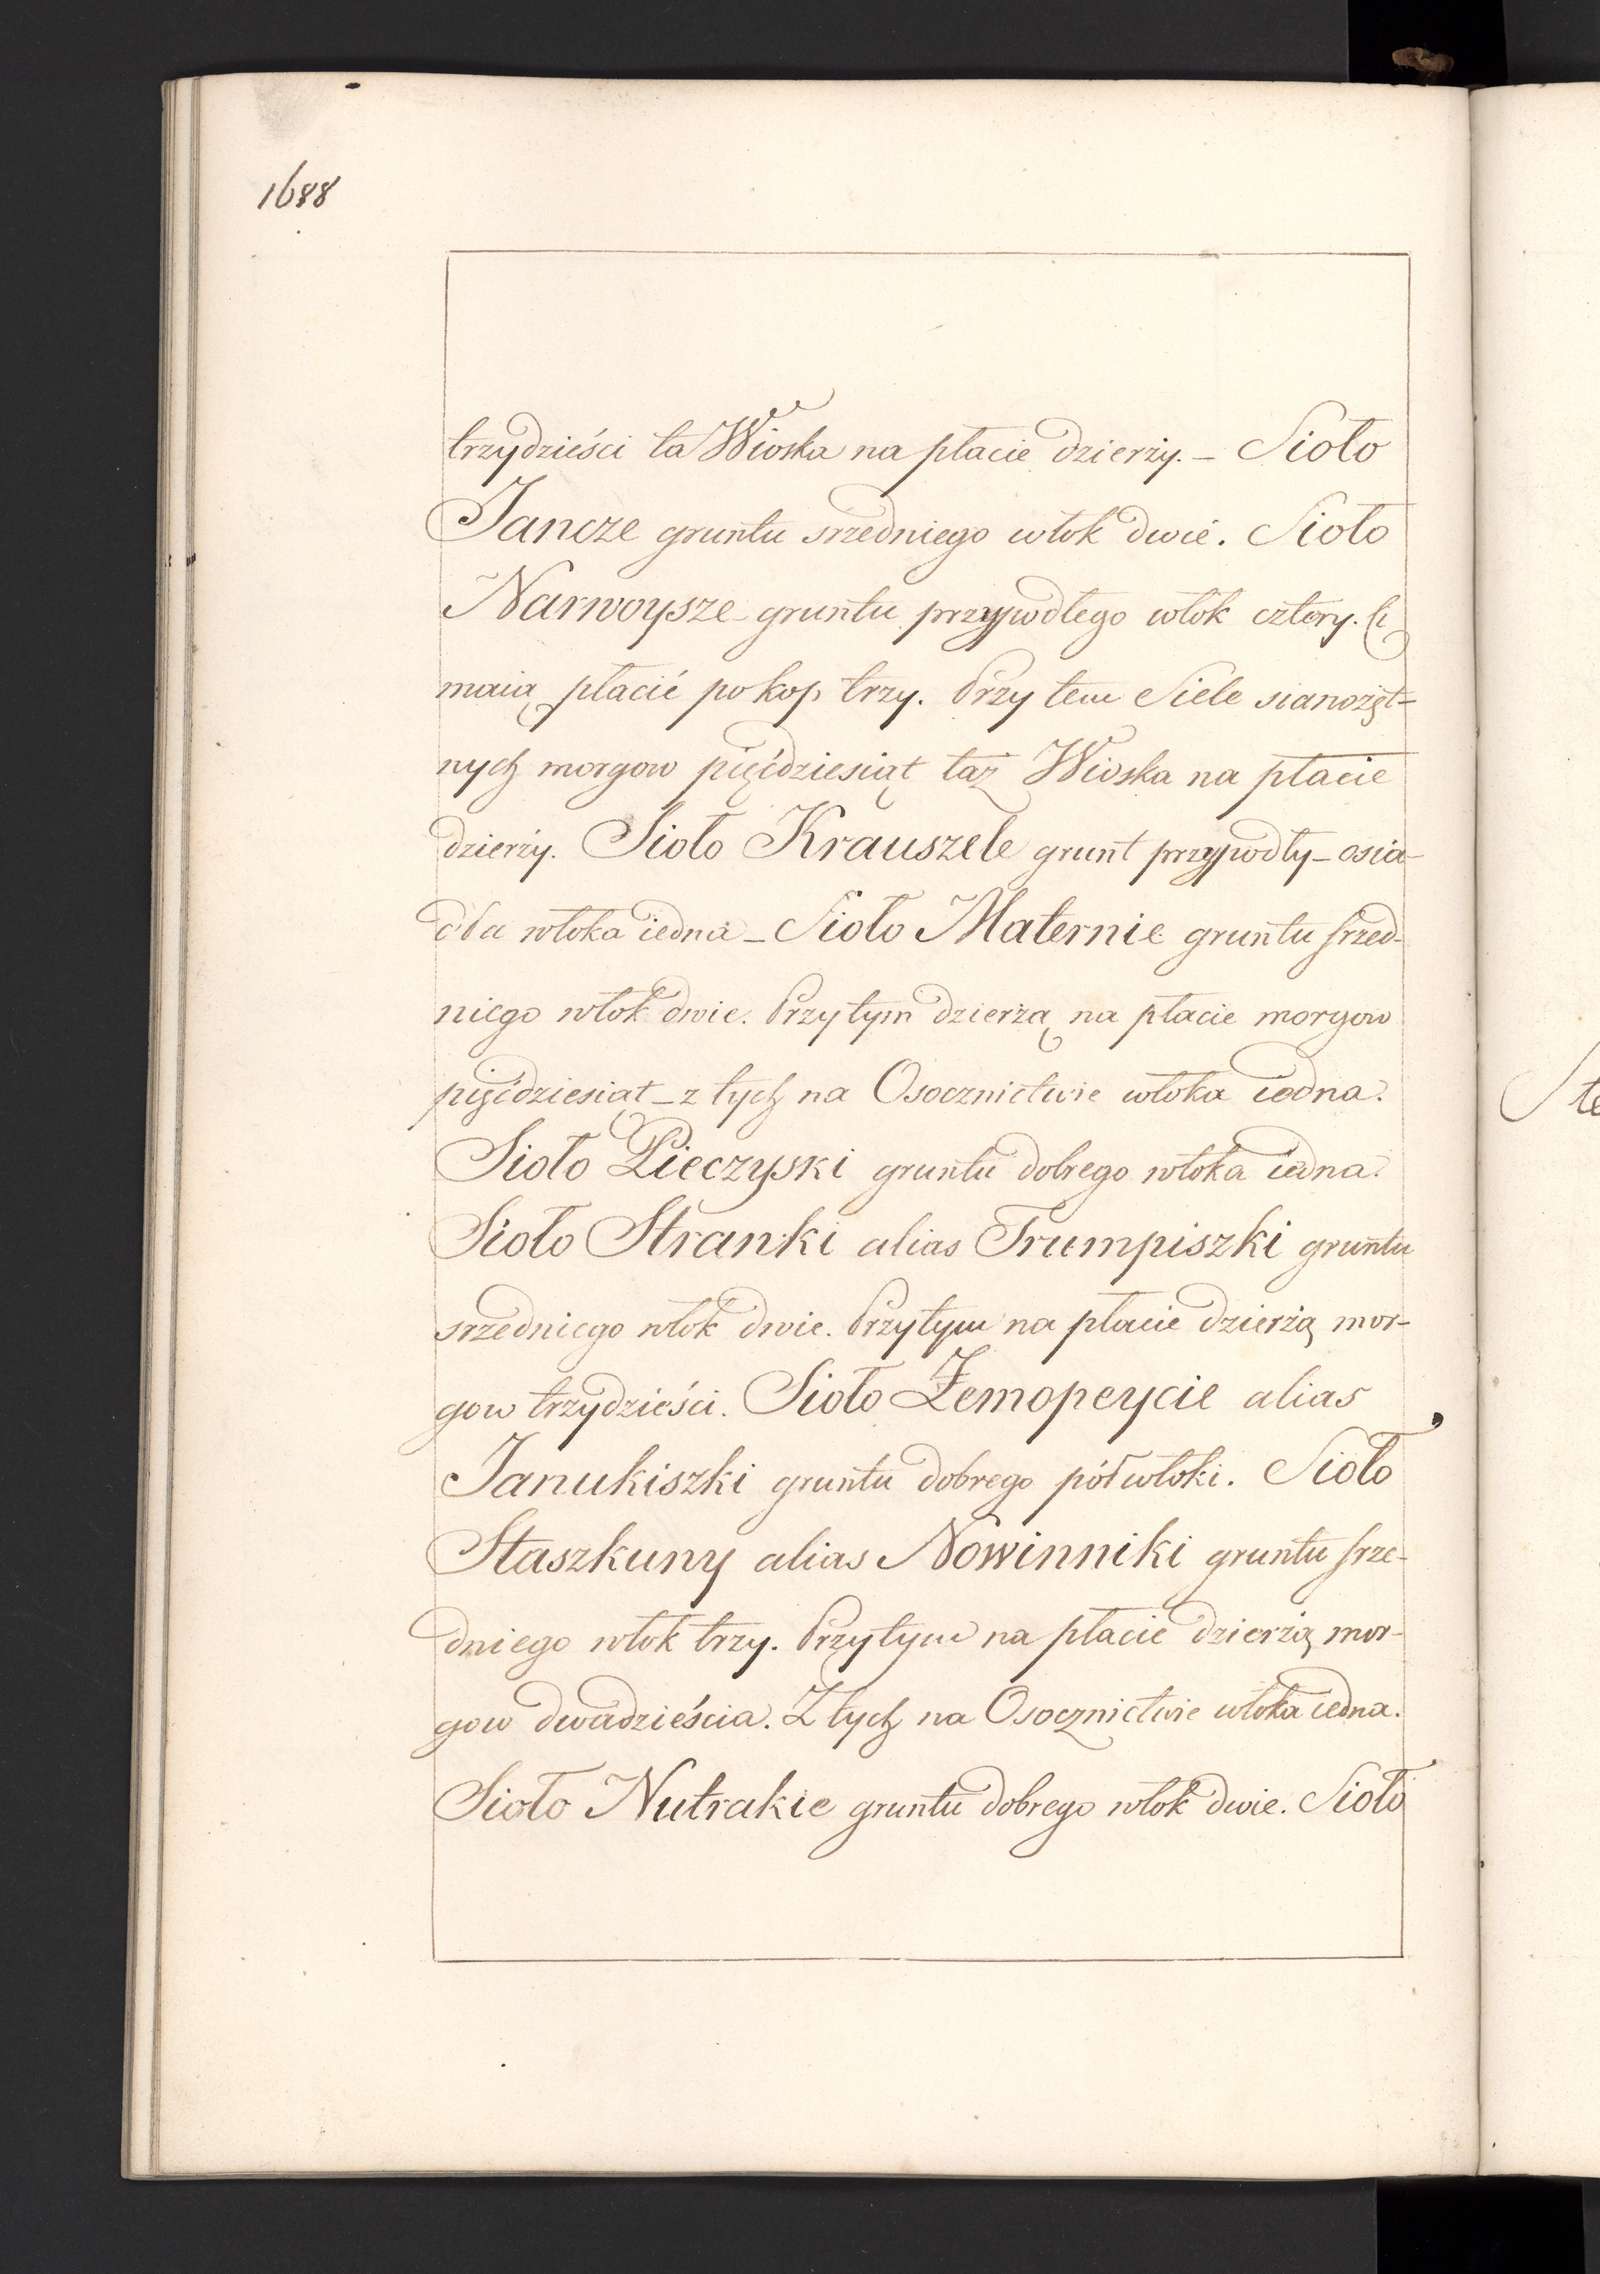 1688
trzydzieści ta Wioska na płacie dzierży. – Sioło
Jancze gruntu srzedniego włok dwie. Sioło
Narwoysze gruntu przypodłego włok cztery. Ci
maią płacić po kop trzy. Przy tem Siele sianożęt=
nych morgow pięćdziesiąt taż Wioska na płacie
dzierży. Sioło Krauszele grunt przypodły – osia-
dła włoka iedna – Sioło Maternie gruntu srzed-
niego włok dwie. Przytym dzierżą na płacie morgow
pięćdziesiąt – z tych na Osocznictwie włoka iedna.
Sioło Pieczyski gruntu dobrego włoka iedna.
Sioło Stranki alias Trumpiszki gruntu
srzedniego włok dwie. Przytym na płacie dzierżą mor-
gow trzydzieści. Sioło Żemopeycie alias
Janukiszki gruntu dobrego pół włoki. Sioło
Staszkuny alias Nowinniki gruntu srze-
dniego włok trzy. Przytym na płacie dzierżą mor-
gow dwadzieścia. Z tych na Osocznictwie włoka iedna.
Sioło Nutrakie gruntu dobrego włok dwie. Sioło